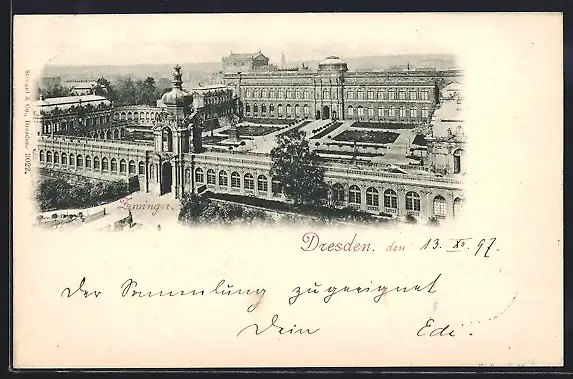 Stengel & Co., Dresden 1022.
Zwinger.
Dresden, den 13. XII. 97.
Der Sammlung zugeeignet
Dein Edi.